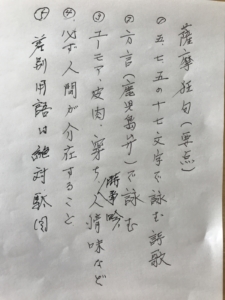 薩摩狂句(要点)
① 五、七五の十七文字で詠む詩歌
② 方言(鹿児島弁)で詠む
③ ユーモア、皮肉、穿ち、時事吟、人情味など
④ 必ず人間が介在すること
⑤ 差別用語は絶対駄目